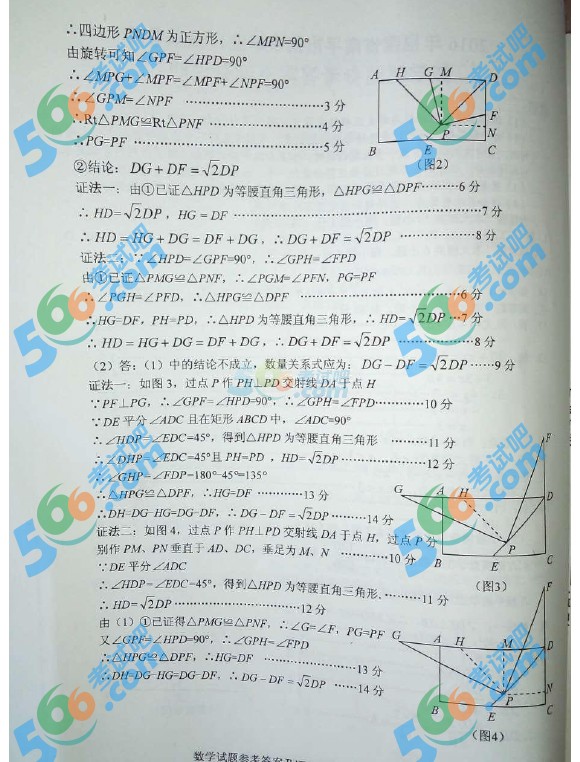 ∴四边形 PNDM 为正方形，∴∠MPN=90°
由旋转可知∠GPF=∠HPD=90°
∴∠MPG+∠MPF=∠MPF+∠NPF=90°
∴∠GPM=∠NPF ……………………3 分
∴Rt△PMG≌Rt△PNF ……………………4 分
∴PG=PF ……………………5 分
A H G M D
F
P N
B E C
(图2)
②结论：DG+DF=√2DP
证法一：由①已证△HPD 为等腰直角三角形，△HPG≌△DPF………6 分
∴HD=√2DP，HG=DF ……………………7 分
∴HD=HG+DG=DF+DG，∴DG+DF=√2DP ……………8 分
证法二：∵∠HPD=∠GPF=90°，∴∠GPH=∠FPD
由①已证△PMG≌△PNF，∴∠PGM=∠PFN，PG=PF
∴∠PGH=∠PFD，∴△HPG≌△DPF ……………………6 分
∴HG=DF，PH=PD，∴△HPD 为等腰直角三角形，∴HD=√2DP…7 分
∴HD=HG+DG=DF+DG，∴DG+DF=√2DP ……………8 分
（2）答：（1）中的结论不成立，数量关系式应为：DG−DF=√2DP……9 分
证法一：如图 3，过点 P 作 PH⊥PD 交射线 DA 于点 H
∵PF⊥PG，∴∠GPF=∠HPD=90°，∴∠GPH=∠FPD…………10 分
∵DE 平分∠ADC 且在矩形 ABCD 中，∠ADC=90°
∴∠HDP=∠EDC=45°，得到△HPD 为等腰直角三角形 ………11 分
∴∠DHP=∠EDC=45°且 PH=PD，HD=√2DP……………12 分
∴∠GHP=∠FDP=180°-45°=135°
∴△HPG≌△DPF，∴HG=DF …………13 分
∴DH=DG-HG=DG-DF，∴DG−DF=√2DP………14 分
F
G A H D
P
B E C
(图3)
证法二：如图 4，过点 P 作 PH⊥PD 交射线 DA 于点 H，过点 P 分
别作 PM、PN 垂直于 AD、DC，垂足为 M、N …………10 分
∵DE 平分∠ADC
∴∠HDP=∠EDC=45°，得到△HPD 为等腰直角三角形，………11 分
∴HD=√2DP……………………12 分
由（1）①已证得△PMG≌△PNF，∴∠G=∠F，PG=PF
又∠GPF=∠HPD=90°，∴∠GPH=∠FPD
∴△HPG≌△DPF，∴HG=DF ……………………13 分
∴DH=DG-HG=DG-DF，∴DG−DF=√2DP ……14 分
F
G A H M D
P N
B E C
(图4)
数学试题参考答案
566考试吧.com
566考试吧.com
566考试吧.com
566考试吧.com
566考试吧.com
566考试吧.com
566考试吧.com